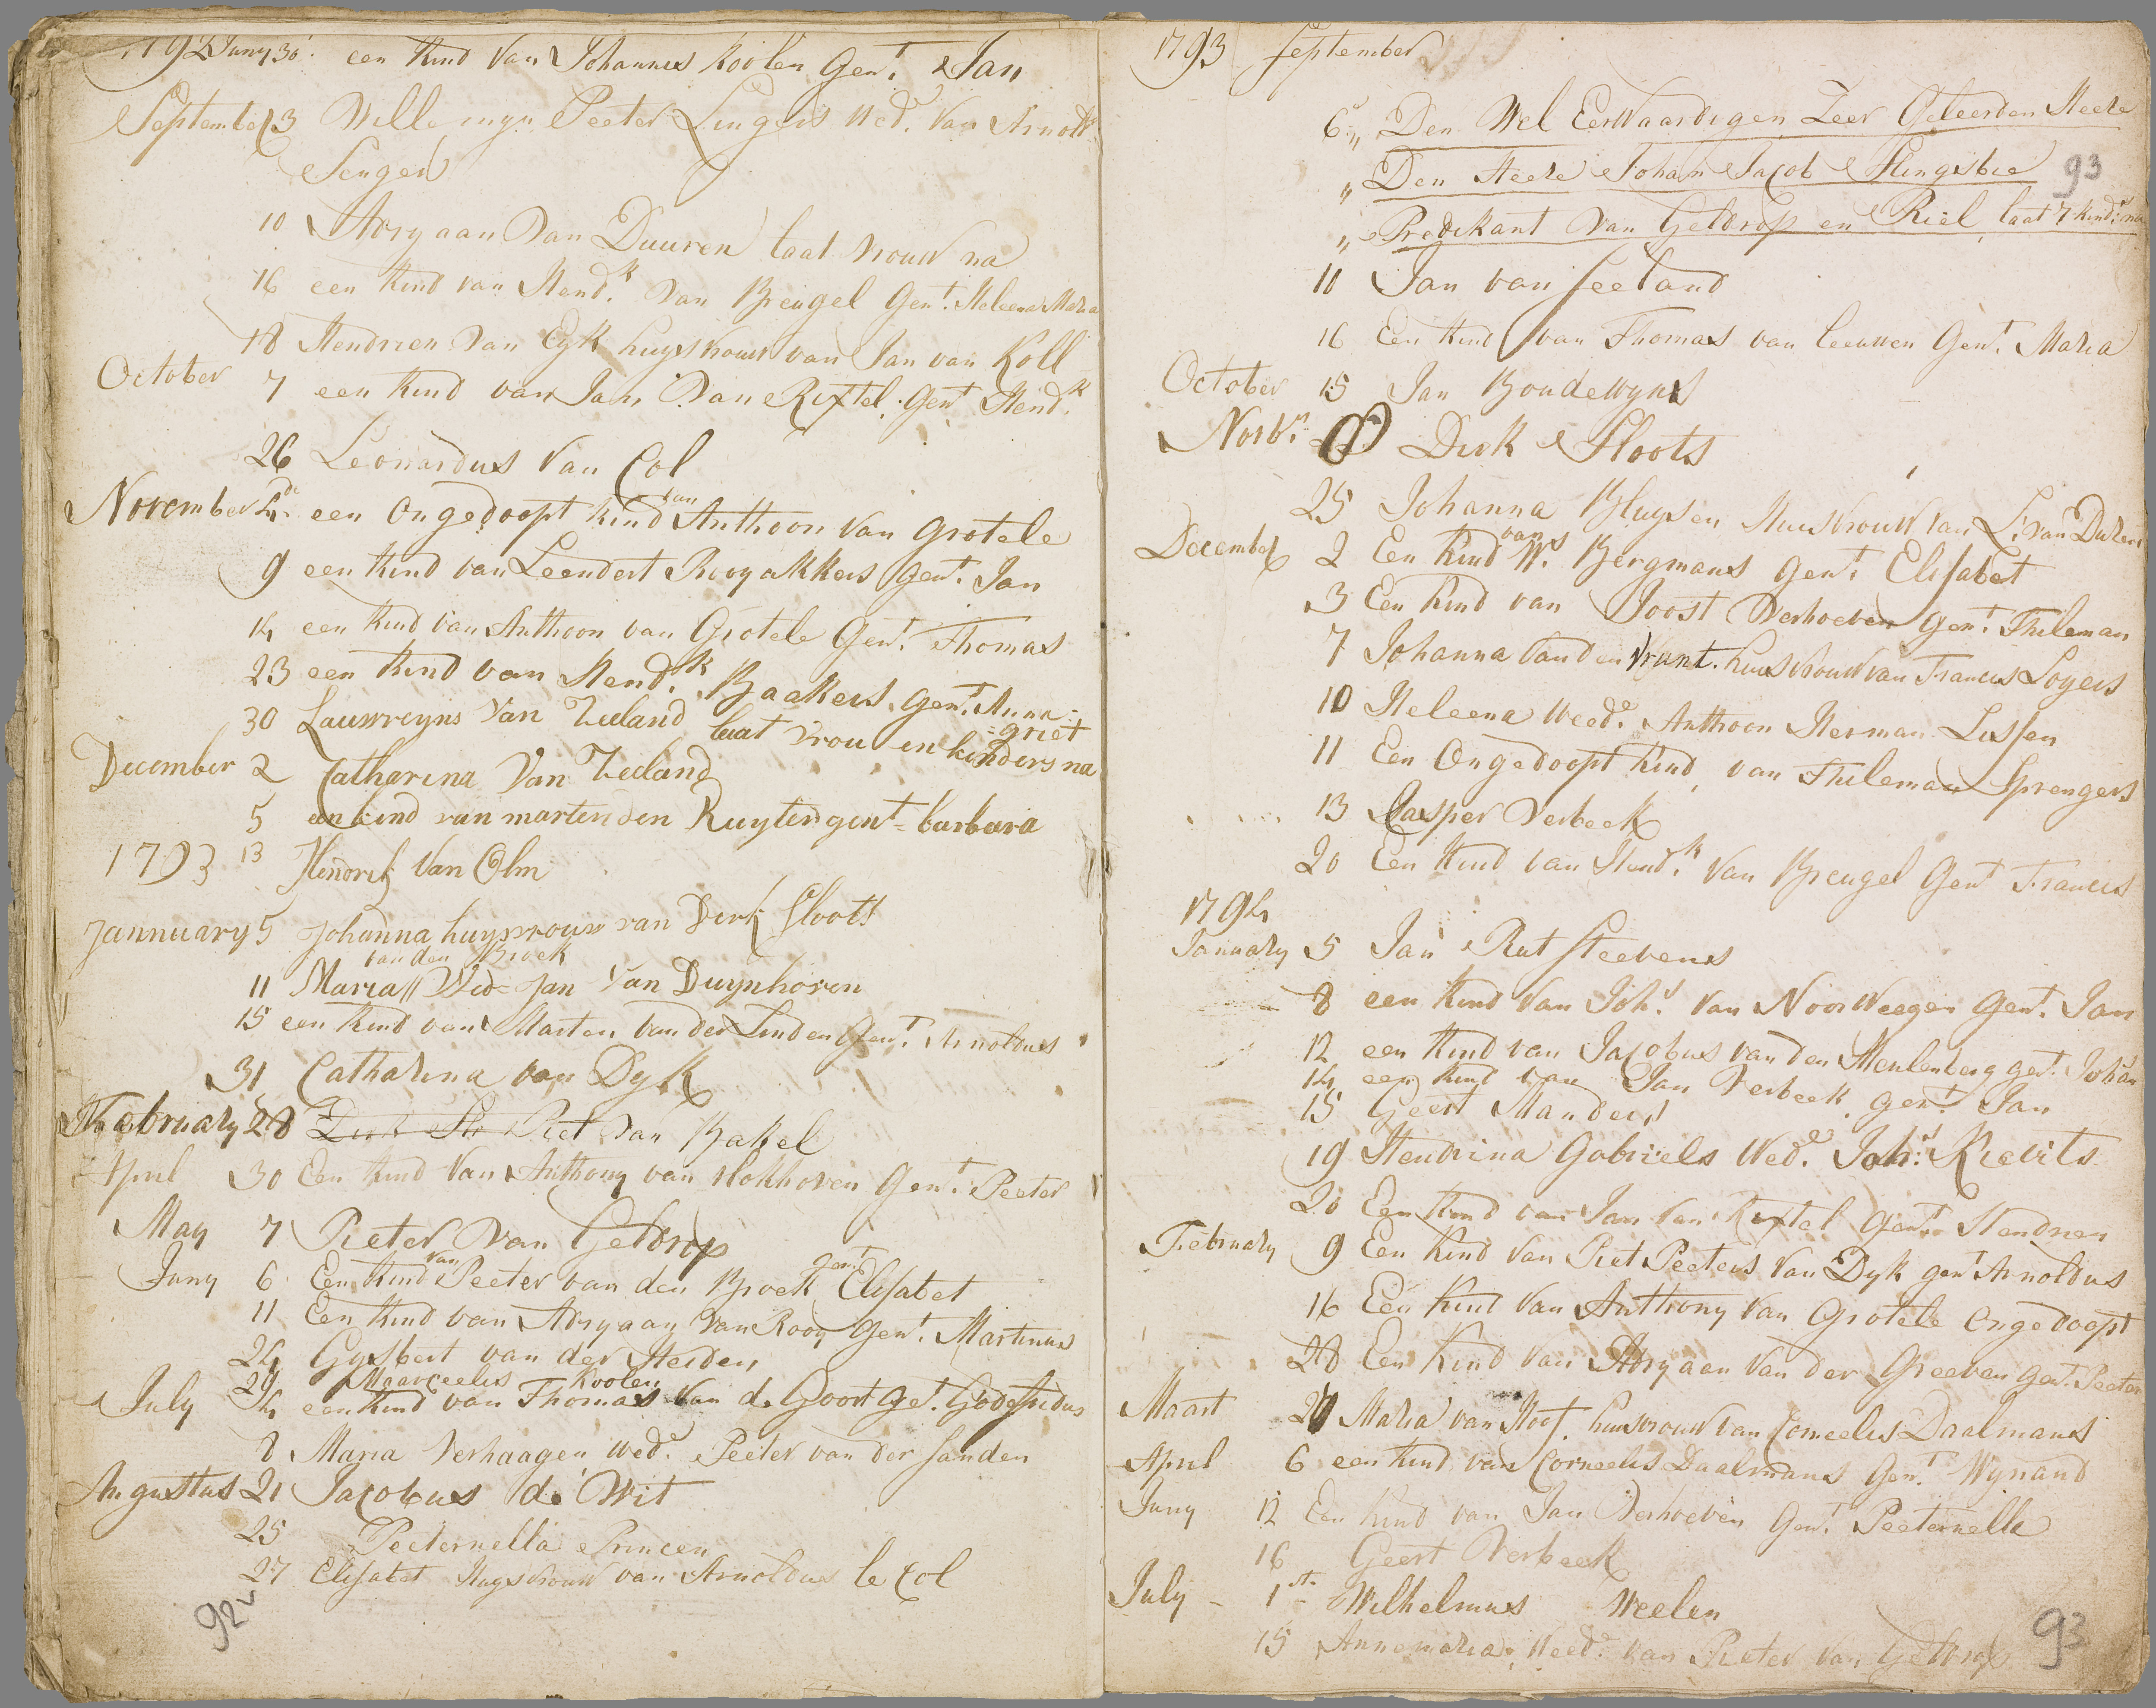 1792 Juny 30 een Kind Van Johannes Koolen Gent. Jan
September 3 Willemyn Peeter Sengers Wede. Van Arnold
Senger
10 Adryaan Van Duuren laat vrouw na
16 een Kind van Hendk. Van Breugel Gent. Heleena Maria
18 Hendrien Van Eyk huysvrouw van Jan van Koll
October 7 een Kind van Jan Van Rixtel Gent Hendk.
26 Leonardus Van Col
November 4de een Ongedoopt Kind van Anthoon Van Grotele
9 een Kind van Leendert Rooyakkers Gent. Jan
14 een Kind van Anthoon van Grotele Gent. Thomas
23 een Kind van Hendk. Baakers, Gent. Anna=
=griet
30 Lauwreyns Van Zeeland laat vrou en kinders na
December 2 Catharina Van Zeeland
5 een kind van marten den Ruyter gent= barbara
1793 13 Hendrik Van Olm
Jannuary 5 Johanna huysvrouw van Derk Sloots
van den Broek
11 Maria // Wed= Jan Van Duynhoven
15 een Kind van Marten van der Linden Gent. Arnoldus
31 Catharina van Dyk
February 28 Dirk Slo Piet Van Bakel
April 30 Een Kind Van Anthony van Hokhoven Gent. Peeter
May 7 Pieter Van Geldrop
Juny 6 Een Kind van Peeter van den Broek gent. Elisabet
11 Een Kind van Adryaan Van Rooy Gent. Martinus
24 Gysbert van der Heiden
29 Maarceelis Koolen
July 4 een Kind van Thomas Van de Goort get. Godefridus
8 Maria Verhaagen wede. Peeter van der Sanden
Augustus 21 Jacobus de Wit
25 Peeternella Princen
27 Elisabet Huysvrouw van Arnoldus le Col
92v
1793 September
6 „ Den Wel Eerwaardigen Zeer Geleerden Heere
„ Den Heere Johan Jacob Slingsbie
93
„ Predikant Van Geldrop en Riel, laat 7 kinds. na
10 Jan van Seeland
16 Een Kind van Thomas van Leeuwen Gent. Maria
October 15 Jan Boudewyns
Novbr. Dirk Sloots
25 Johanna Bluysen Huusvrouw van L. van Duren
December 2 Een Kind van Ws. Bergmans Gent. Elisabet
3 Een Kind van Joost Verhoeven Gent. Thileman
7 Johanna Van den Vrant. huusvrouw van Francis Loyers
10 Heleena Weede. Anthoon Herman Lissen
11 Een Ongedoopt Kind, van Thileman Sprengers
13 Casper Verbeek
20 Een Kind van Hendk. Van Breugel Gent Francis
1794
January 5 Jan Rut Steevens
8 een Kind Van Johs. Van Noorweegen Gent. Jan
12 een Kind van Jacobus van den Meulenberg get. Johan
14 een Kind van Jan Verbeek gent. Jan
15 Geert Manders
19 Hendrina Gabriels Wede. Johs. Kievits
20 Een Kind van Jan Van Rixtel Gent. Hendrien
February 9 Een Kind Van Piet Peeters Van Dyk gent Arnoldus
16 Een Kind Van Anthony Van Grotele Ongedoopt
28 Een Kind Van Adryaan Van der Greeven Get. Peeter
Maart 27 Maria van Hoof, huusvrouw van Corneelis Daalmans
April 6 een Kind van Corneelis Daalmans Gent. Wynand
Juny 12 Een Kind van Jan Verhoeven Gent. Peeternella
16 Geert Verbeek
July - 1ste - Wilhelmus Weelen
15 Annemaria, Weede. van Pieter Van Geldrop
93